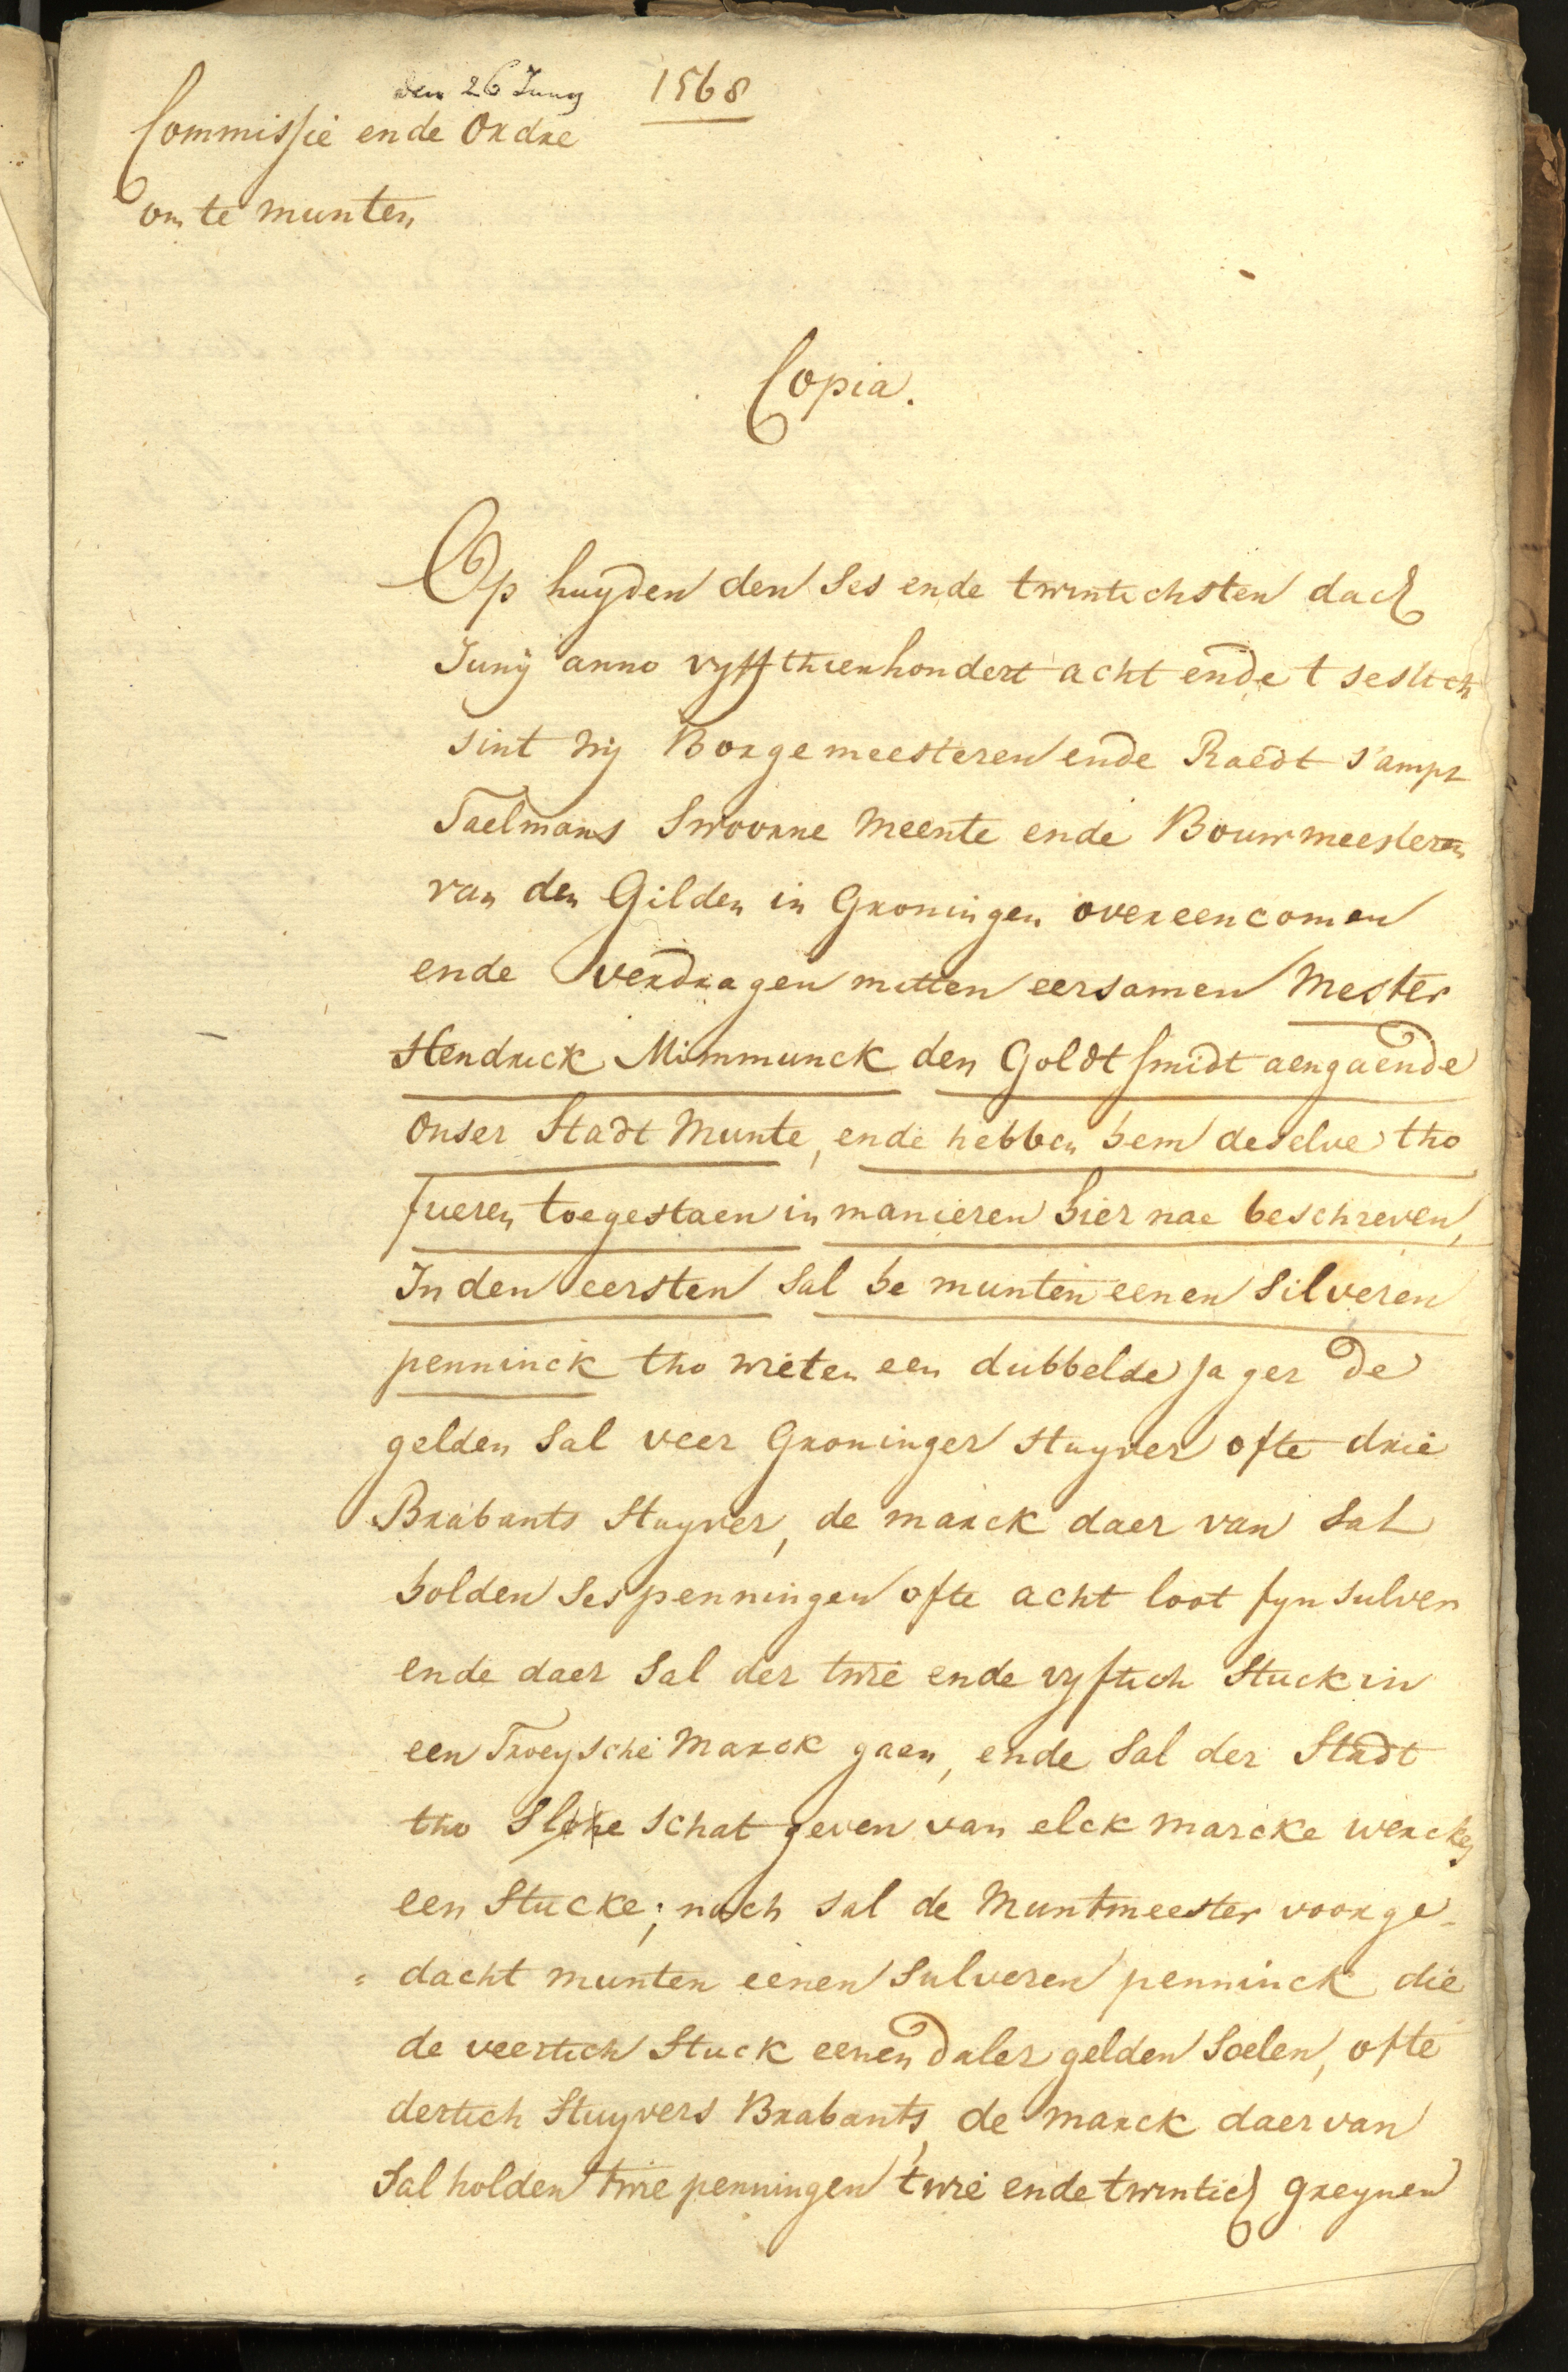 den 26 Juny 1568
Commissie ende Ordre
om te munten
Copia.
Op huyden den ses ende twintichsten dach
Junij anno vyffthienhondert acht ende t sestich
sint wij Borgemeesteren ende Raedt sampt
Taelmans Swoorne Meente ende Bouwmeesteren
van den Gilden in Groningen overeencomen
ende verdragen mitten eersamen Mester
Hendrick Mimmunck den Goldtsmidt aengaende
onser Stadt Munte, ende hebben hem deselve tho
fueren toegestaen in manieren hier nae beschreven,
In den eersten sal he munten eenen silveren
penninck tho weten een dubbelde Jager de
gelden sal veer Groninger stuyver ofte drie
Brabants Stuyver, de marck daer van sal
holden ses penningen ofte acht loot fyn sulver
ende daer sal der twie ende vyftich stuck in
een Troeysche Marck gaen, ende sal der Stadt
tho schat geven van elck marcke wercks
een Stucke; noch sal de Muntmeester voorge-
= dacht munten eenen sulveren penninck die
de veertich Stuck eenen daler gelden soelen, ofte
dertich Stuyvers Brabants, de marck daer van
sal holden twie penningen twie ende twintich greynen